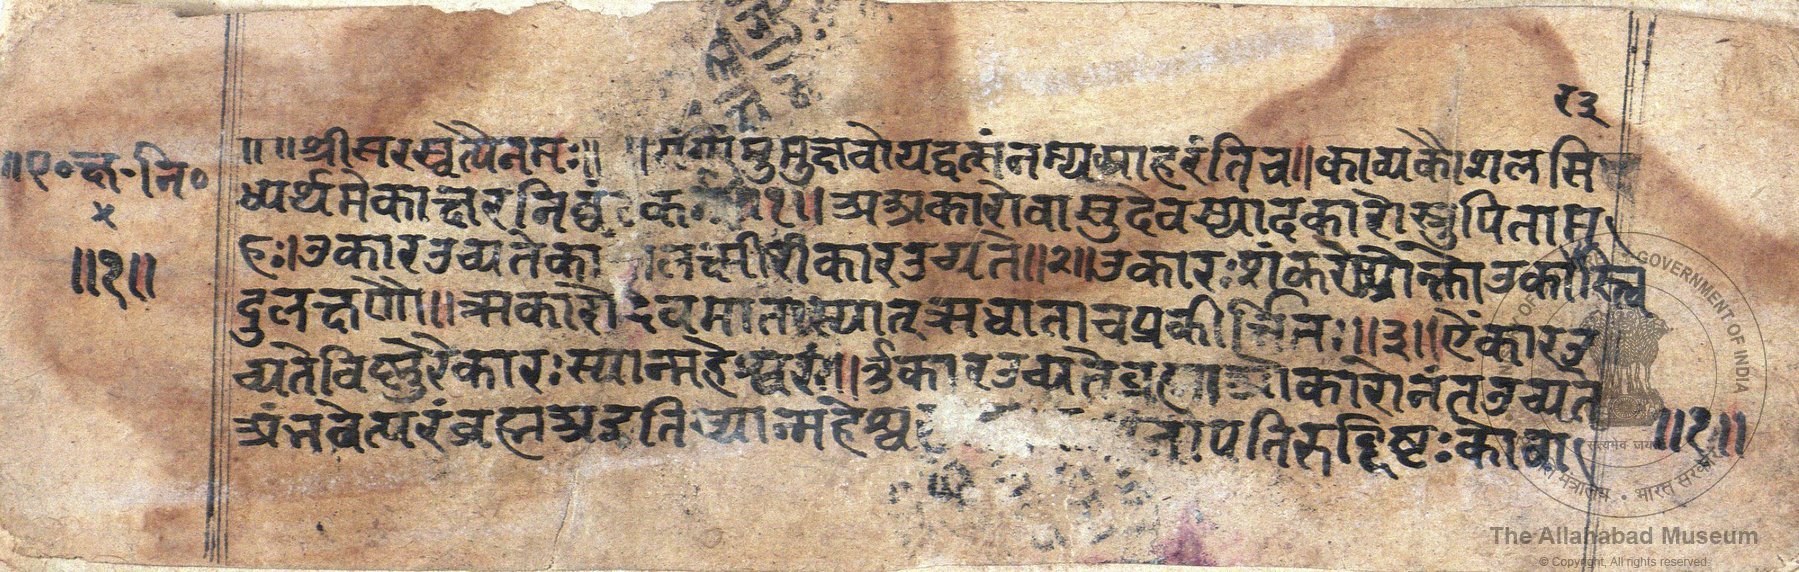 २३
॥ ॥ श्रीसरस्वत्यैनमः॥ ॥ मुमुक्षवोयद्वत्संनम्यप्राहरंतिच॥काव्यकौशलसि
ध्यर्थमेकाक्षरनि ॥१॥ अअकारोवासुदेवस्यादकारोस्तुपिताम
हः।उकारउच्यते लक्ष्मीरीकारउच्यते॥२॥उकारःशंकरःप्रोक्तोउकार
दुलक्षणौ॥ऋकारोदेवमातास्यात्ऋधाताचप्रकीर्त्तितः॥३॥ऐंकारउ
च्यतेविष्णुरैकारःस्यान्महेश्वरः॥र्उकारउच्यतेब्रह्मा कारोनंतउच्यते
अंत्तवेत्परंब्रह्मअइतिच्यान्महेश्व पतिरुद्दिष्टःकोवा
॥ए०क्ष०नि०
॥१॥
॥१॥
GOVERNMENT OF INDIA
सत्यमेव जयते
भारत सरकार
The Allahabad Museum
© Copyright, All rights reserved